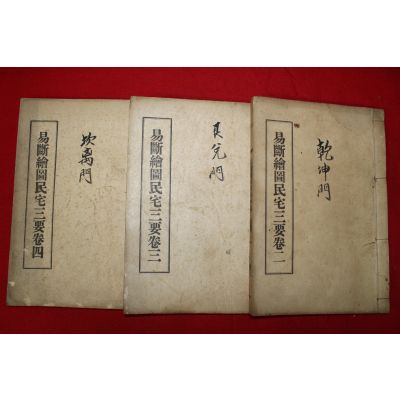 易斷繪圖民宅三要卷二
乾坤門
易斷繪圖民宅三要卷三
艮兌門
易斷繪圖民宅三要卷四
坎离門